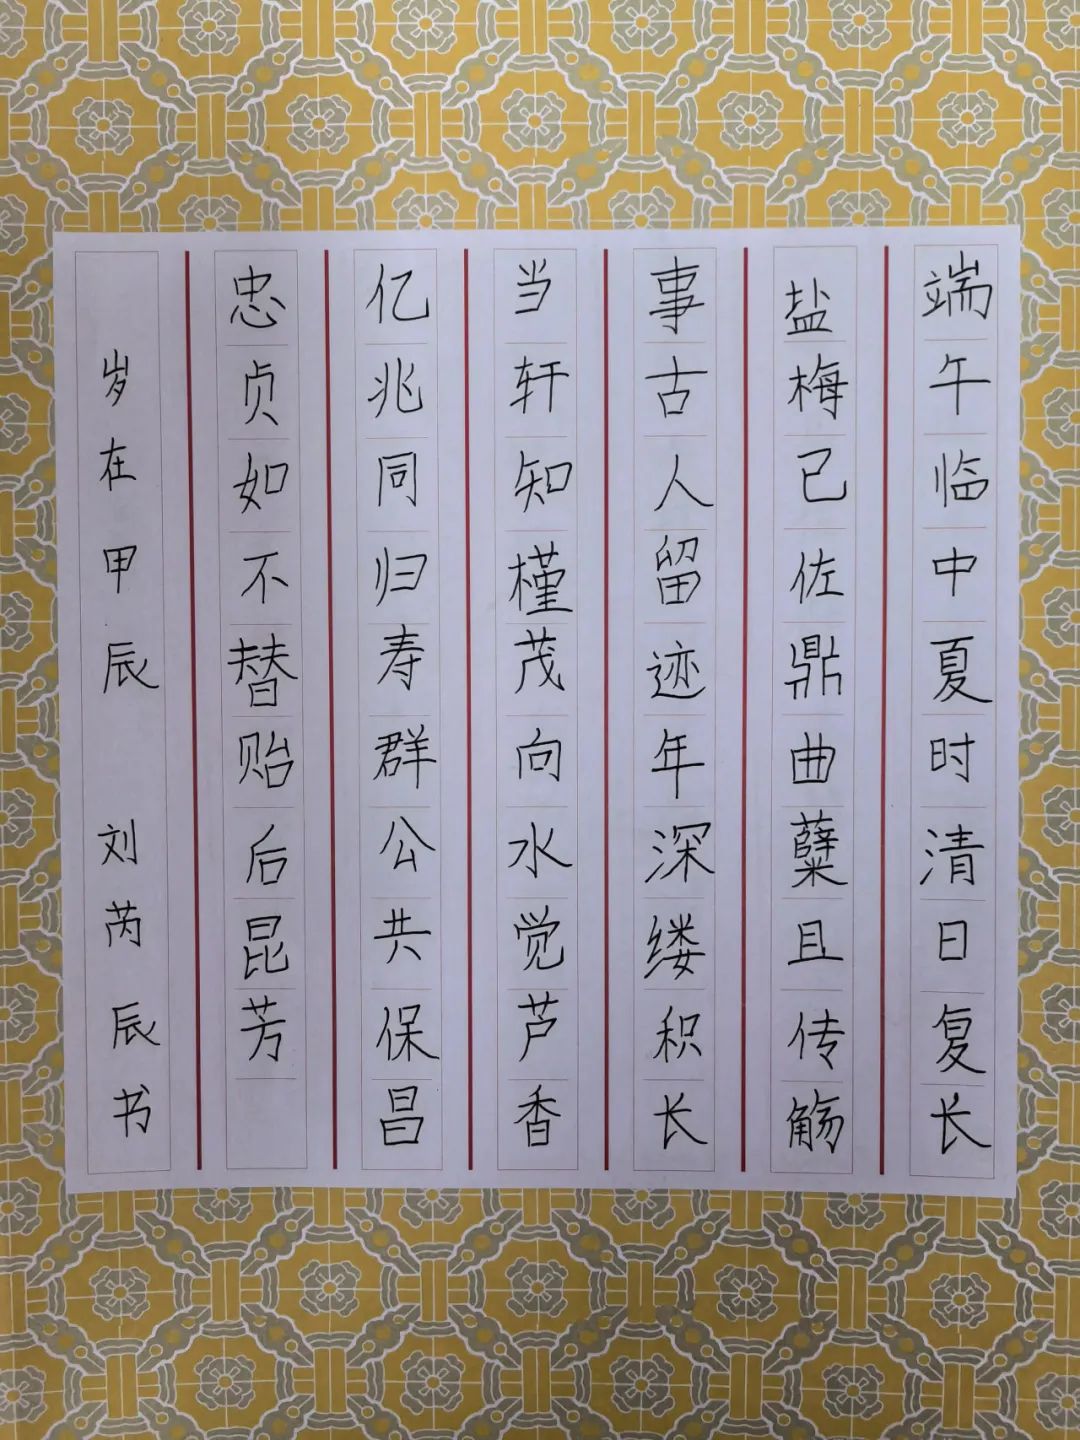 端午临中夏时清日复长
盐梅已佐鼎曲蘖且传觞
事古人留迹年深缕积长
当轩知槿茂向水觉芦香
亿兆同归寿群公共保昌
忠贞如不替贻后昆芳
岁在甲辰 刘芮辰书